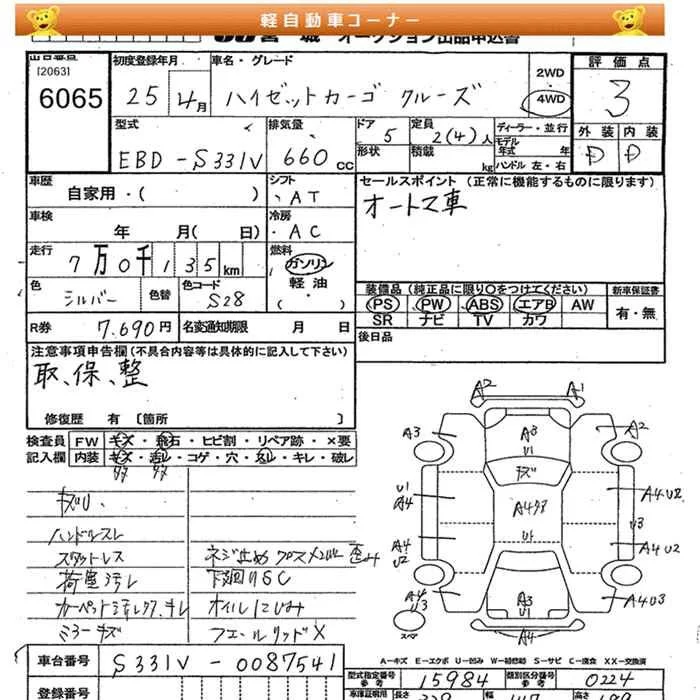 軽自動車コーナー
宮城 オークション出品申込書
出品番号
[2063]
6065
初度登録年月
25 4月
車名・グレード
ハイゼットカーゴ クルーズ
2WD
4WD
評価点
3
型式
EBD-S331V
排気量
660 CC
ドア
5
定員
2(4)人
形状
積載
kg
ディーラー・並行
モデル年式 年
ハンドル 左・右
外装 内装
D D
車歴
自家用・( )
シフト
AT
セールスポイント (正常に機能するものに限ります)
オートマ車
車検
年 月( 日)
冷房
AC
走行
7万0千135km
燃料
ガソリン
軽油
( )
色
シルバー
色替
色コード
S28
装備品 (純正品に限り〇をつけてください)
PS PW ABS エアB AW
SR ナビ TV カワ
新車保証書
有・無
R券
7.690円
名変通知期限
月 日
後日品
注意事項申告欄 (不具合内容等は具体的に記入して下さい)
取、保、整
修復歴 有 [箇所 ]
検査員 FW キズ・飛石・ヒビ割・リペア跡・×要
記入欄 内装 キズ・汚レ・コゲ・穴・スレ・キレ・破レ
キズU
ハンドルスレ
スタットレス
ネジ止め
歪み
荷室汚レ
下廻りSC
オイルにじみ
ミラーキズ
フューエルリッドX
A2 A1
A3 A3 A2
U1
キズ
U1
A4
A4 U2
U3
U1
A4
U2
A4 U2
A4
U3
A3
U1
A4 U3
スペア
A4
A-キズ E-エクボ U-凹み W-補修跡 S-サビ C-腐食 XX-交換済
車台番号
S331V-0087541
型式指定番号
参考
15984
類別区分番号
参考
0224
登録番号
車庫証明用
長さ
幅
高さ